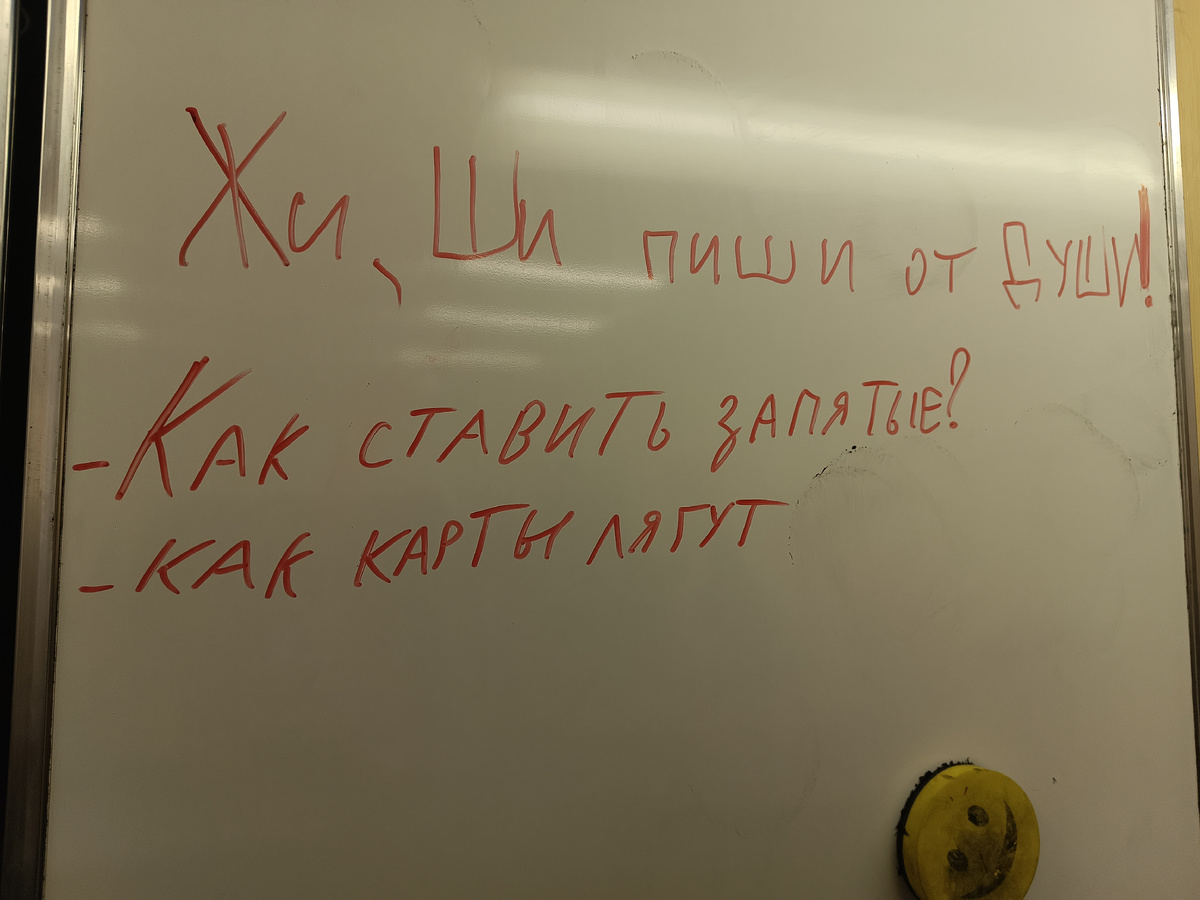 Жи, Ши пиши от души!
- Как ставить запятые?
- как карты лягут